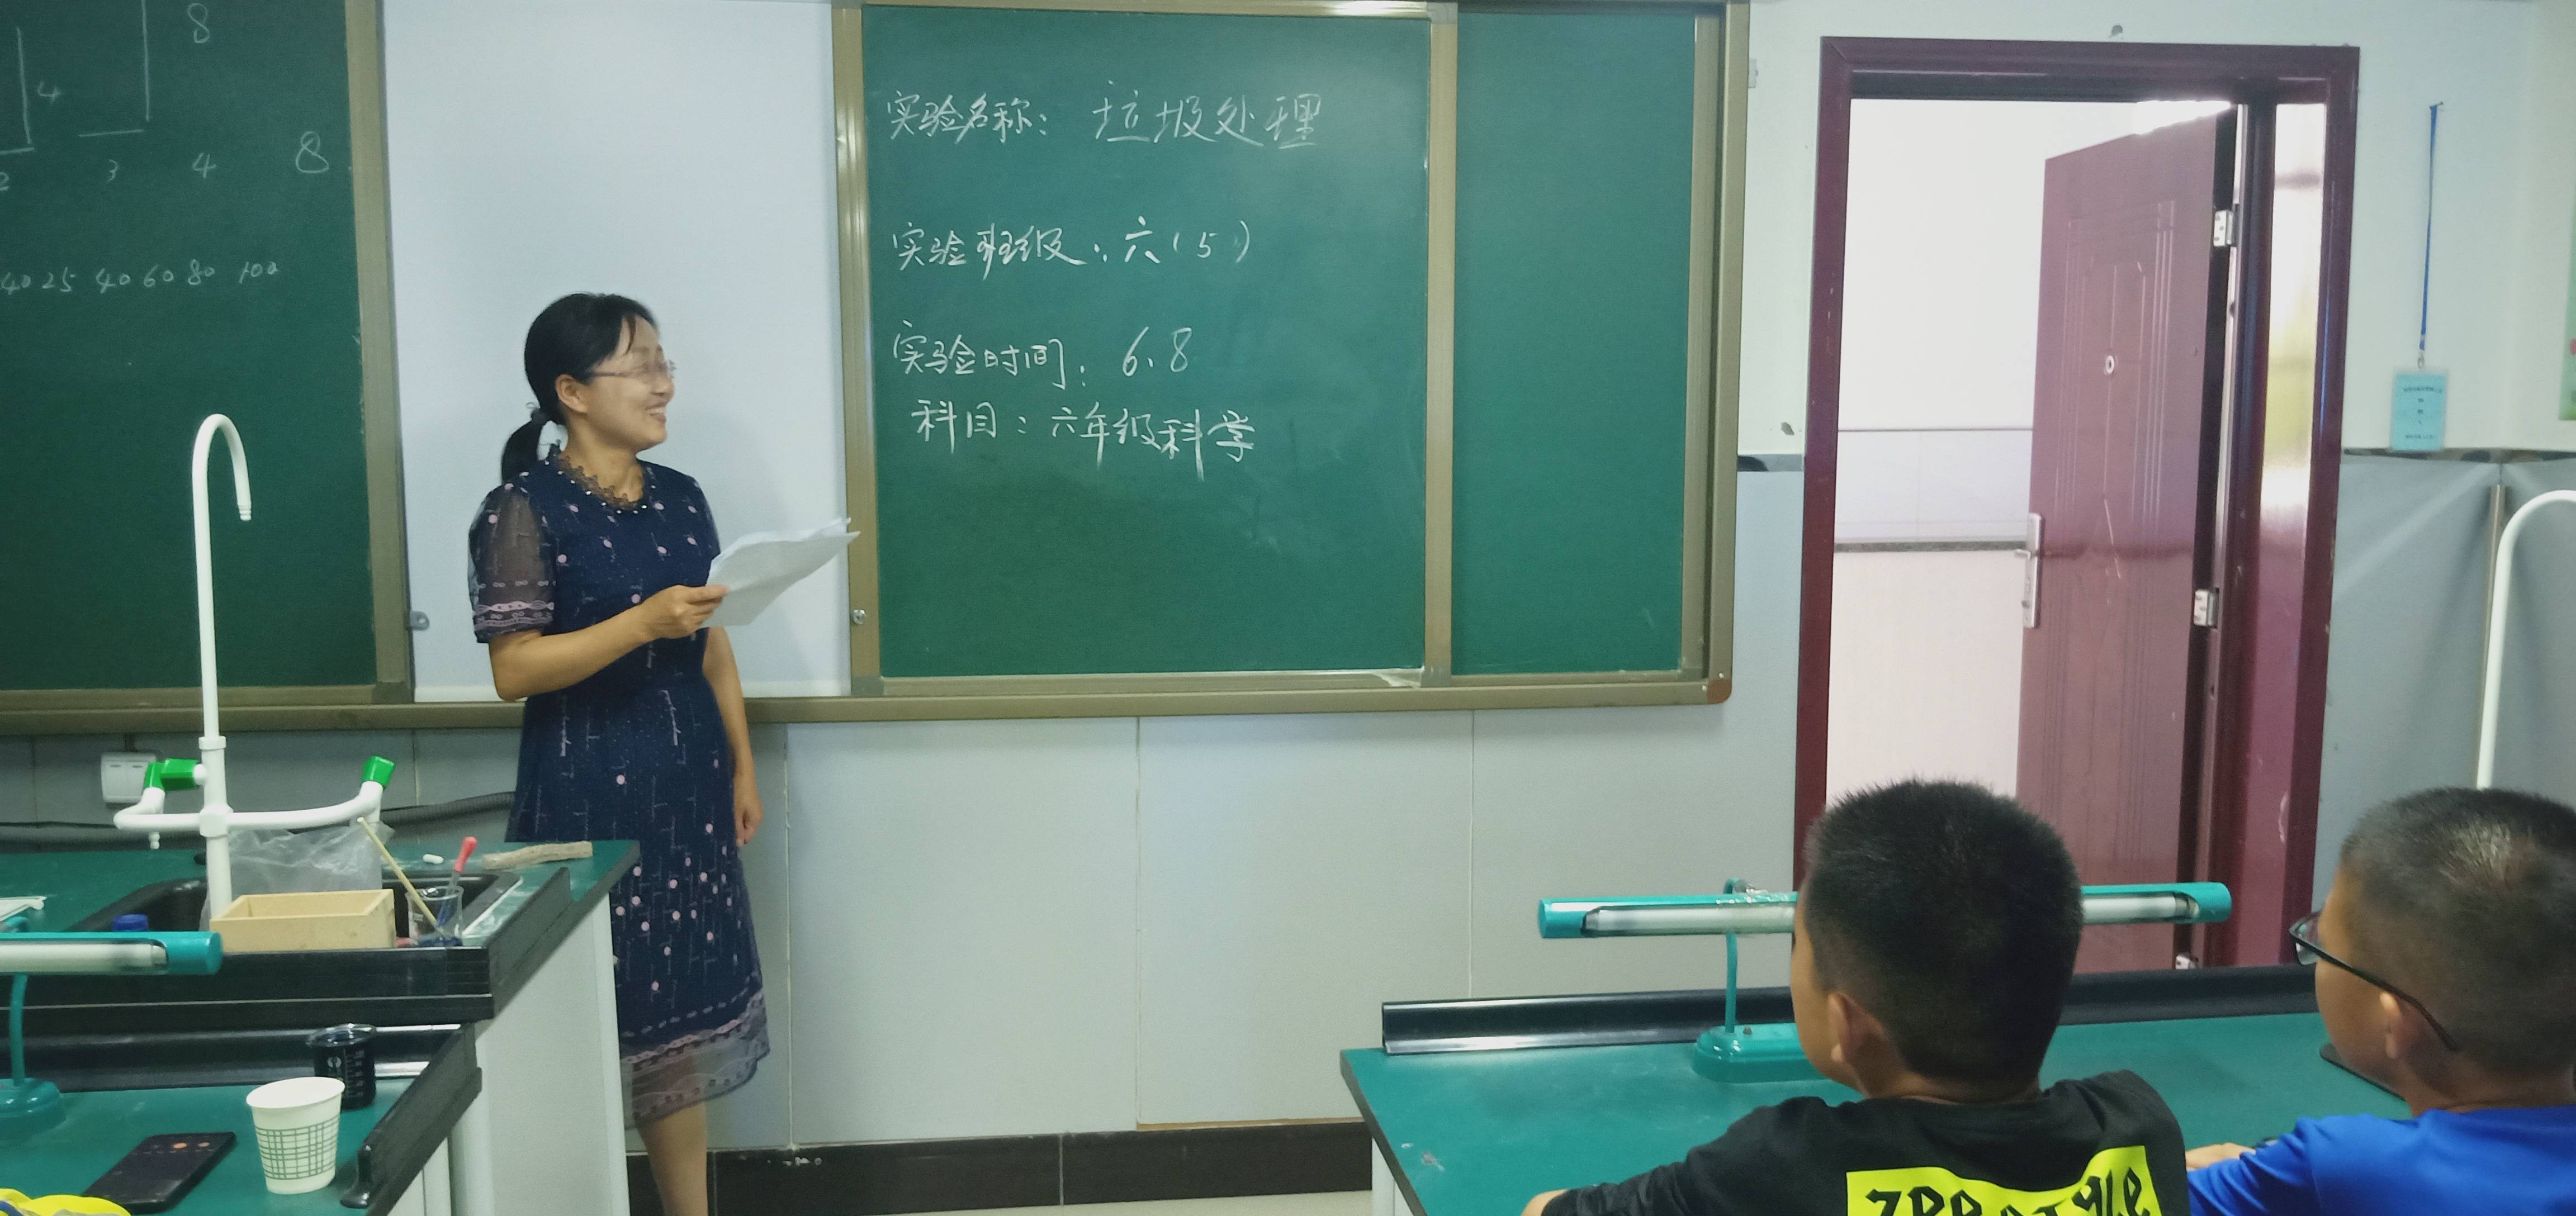 8
4
3 4 8
40 25 40 60 80 100
实验名称：垃圾处理
实验班级：六（5）
实验时间：6.8
科目：六年级科学